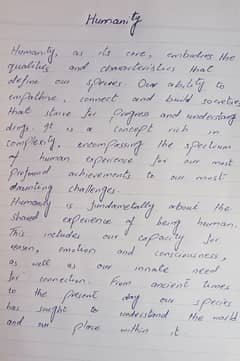 Humanity
Humanity, as its core, embodies the
qualities and characteristics that
define our species. Our ability to
empathize, connect and build societies
that strive for progress and understang
dings. It is a concept rich in
complexity, encompassing the spectrum
of human experience for our most
profound achievements to our most
daunting challenges.
Humanity is fundametally about the
shared experience of being human.
This includes our capacity for
reason, emotion and consciousness,
as well as our innate need
for connection. From ancient times
to the present day our species
has sought to understand the world
and our place within it